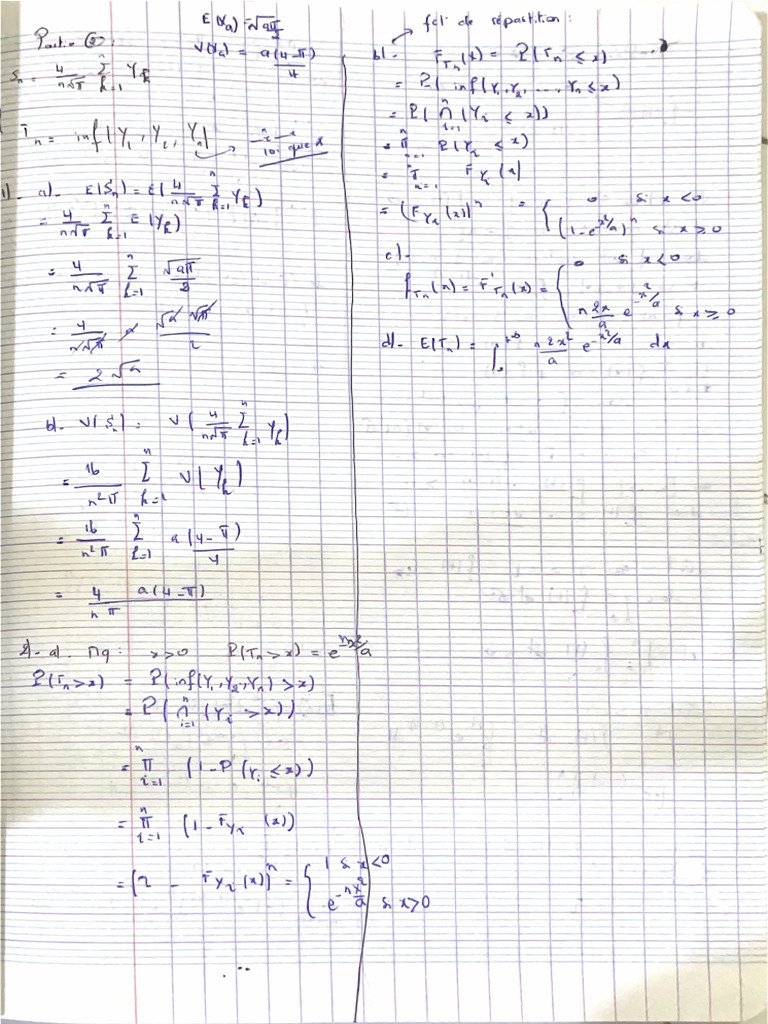 E(Xa) = √aπ/2
Partie ②:
V(Xa) = a(4-π)/4
Sn = 4/(n√π) Σ_{k=1}^{n} Yk
Tn = inf(Y1, Y2, Yn)
que X
1)- a)- E(Sn) = E(4/(n√π) Σ_{k=1}^{n} Yk)
= 4/(n√π) Σ_{k=1}^{n} E(Yk)
= 4/(n√π) Σ_{k=1}^{n} √aπ/2
= 4/(n√π) n √a √π/2
= 2√a
b)- V(Sn) = V(4/(n√π) Σ_{k=1}^{n} Yk)
= 16/(n²π) Σ_{k=1}^{n} V(Yk)
= 16/(n²π) Σ_{k=1}^{n} a(4-π)/4
= 4/(nπ) a(4-π)
2)- a)- Mq: x>0 P(Tn > x) = e^{-nx²/a}
P(Tn > x) = P(inf(Y1, Y2, Yn) > x)
= P(∩_{i=1}^{n} (Yi > x))
= Π_{i=1}^{n} (1 - P(Yi ≤ x))
= Π_{i=1}^{n} (1 - F_{Yi}(x))
= (1 - F_{Yi}(x))^n = { 1 si x<0
e^{-nx²/a} si x>0
fct de répartition:
b)- F_{Tn}(x) = P(Tn ≤ x)
= P(inf(Y1, Y2, ..., Yn ≤ x)
= P(∩_{i=1}^{n} (Yi ≤ x))
= Π_{i=1}^{n} P(Yi ≤ x)
= Π_{i=1}^{n} F_{Yi}(x)
= (F_{Yi}(x))^n = { 0 si x<0
(1-e^{-x²/a})^n si x≥0
c)-
f_{Tn}(x) = F'_{Tn}(x) = { 0 si x<0
n 2x/a e^{-x²/a} si x≥0
d)- E(Tn) = ∫_0^{+∞} n2x²/a e^{-x²/a} dx